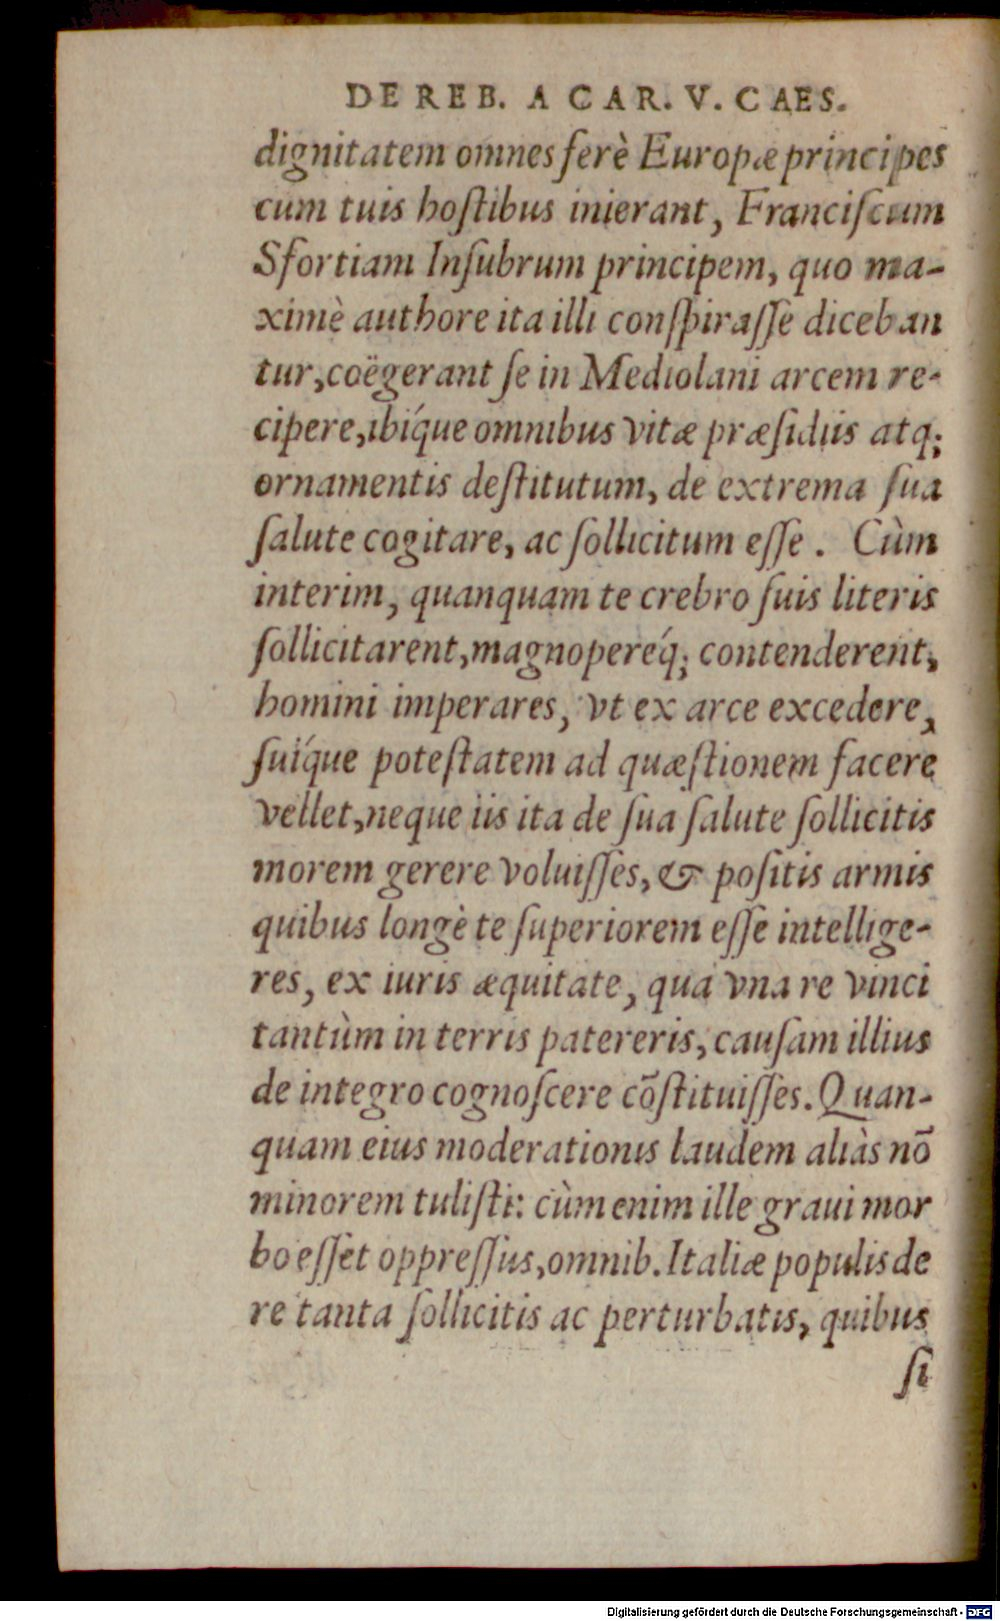 DE REB. A CAR. V. CAES.
dignitatem omnes ferè Europæ principes
cum tuis hoſtibus inierant, Franciſcum
Sfortiam Inſubrum principem, quo ma-
ximè authore ita illi conſpiraſſe diceban
tur, coëgerant ſe in Mediolani arcem re-
cipere, ibíque omnibus vitæ præſidiis atq;
ornamentis deſtitutum, de extrema ſua
ſalute cogitare, ac ſollicitum eſſe. Cùm
interim, quanquam te crebro ſuis literis
ſollicitarent, magnoperéq; contenderent,
homini imperares, vt ex arce excedere,
ſuíque poteſtatem ad quæſtionem facere
vellet, neque iis ita de ſua ſalute ſollicitis
morem gerere voluiſſes, & poſitis armis
quibus longè te ſuperiorem eſſe intellige-
res, ex iuris æquitate, qua vna re vinci
tantùm in terris patereris, cauſam illius
de integro cognoſcere cõſtituiſſes. Quan-
quam eius moderationis laudem aliàs nõ
minorem tuliſti: cùm enim ille graui mor
bo eſſet oppreſſus, omnib. Italiæ populis de
re tanta ſollicitis ac perturbatis, quibus
ſi
Digitalisierung gefördert durch die Deutsche Forschungsgemeinschaft - DFG